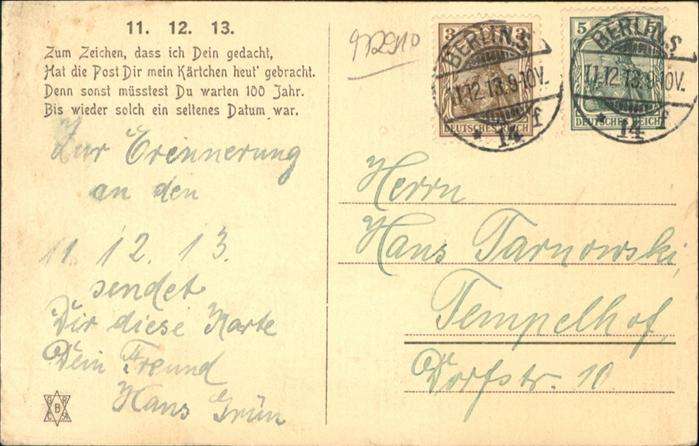 11. 12. 13.
Zum Zeichen, dass ich Dein gedacht,
Hat die Post Dir mein Kärtchen heut' gebracht.
Denn sonst müsstest Du warten 100 Jahr.
Bis wieder solch ein seltenes Datum war.
Zur Erinnerung
an den
11 12 13.
sendet
Dir diese Karte
Dein Freund
Hans Grün
3 3
DEUTSCHES REICH
BERLIN.S
11.12.13.9-10V.
* 14 f
5
DEUTSCHES REICH
BERLIN.S
11.12.13.9-10V.
* 14 f
Herrn
Hans Tarnowski,
Tempelhof,
Dorfstr. 10
B